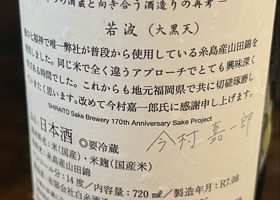 の酒蔵と向き合う酒造りの再考
若波（大黒天）
七福神で唯一弊社が普段から使用している糸島産山田錦
しました。同じ米で全く違うアプローチでとても興味深く
ある時間でした。これからも地元福岡県で共に切磋琢磨し
思います。改めて今村嘉一郎氏に感謝申し上げます。
SHIRAITO Sake Brewery 170th Anniversary Sake Project
日本酒 ◎要冷蔵
今村嘉一郎
米（国産）・米麹（国産米）
糸島産山田錦
ルコール分：14度／内容量：720㎖／製造年月：R7.08
白糸酒造